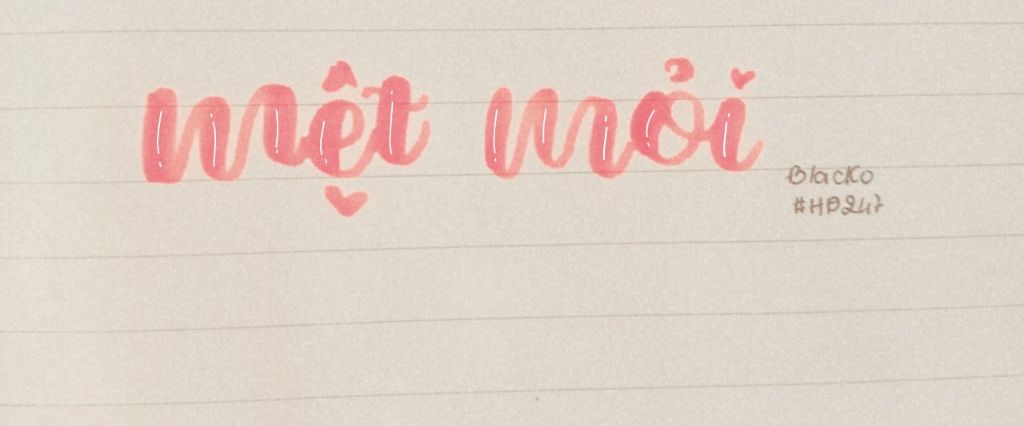 mệt mỏi
Blacko
#HD247